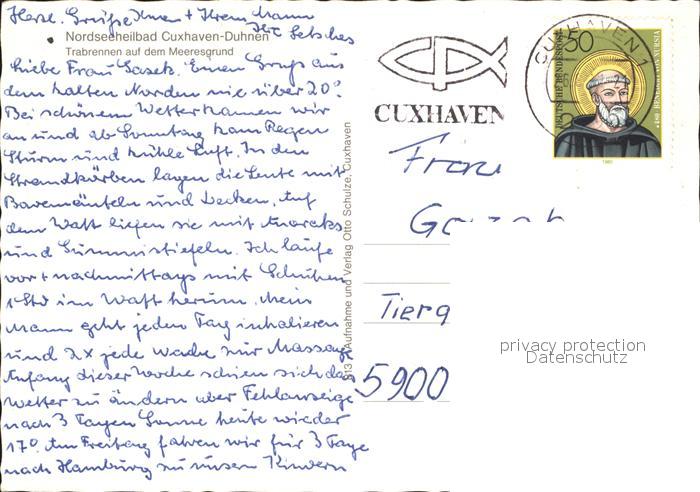 Herzl. Grüße Ihnen + Ihrem Mann
Ihre
Nordseeheilbad Cuxhaven-Duhnen
Trabrennen auf dem Meeresgrund
Liebe Frau Gasek. Einen Gruß aus
dem kalten Norden nie über 20°.
Bei schönem Wetter kamen wir
an und ab Sonntag kam Regen
Sturm und kühle Luft. In den
Strandkörben lagen die Leute mit
Bademänteln und Decken. Auf
dem Watt liefen sie mit Anoraks
und Gummistiefeln. Ich laufe
vor + nachmittags mit Schuhen
1 Std im Watt herum. Mein
Mann geht jeden Tag inhalieren
und 2x jede Woche zur Massage
Anfang dieser Woche schien sich das
Wetter zu ändern aber Fehlanzeige
nach 3 Tagen Sonne heute wieder
17°. Am Freitag fahren wir für 3 Tage
nach Hamburg zu unsern Kindern
Aufnahme und Verlag Otto Schulze, Cuxhaven
CUXHAVEN
CUXHAVEN 1
DEUTSCHE BUNDESPOST
50
480 BENEDIKT VON NURSIA
1980
Frau
Tierg
5900
privacy protection
Datenschutz